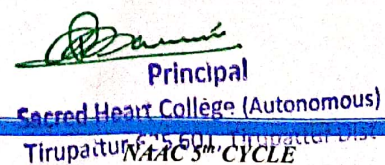 Principal
Sacred Heart College (Autonomous)
Tirupattur 635 601, Tirupattur Dist.
NAAC 5th CYCLE